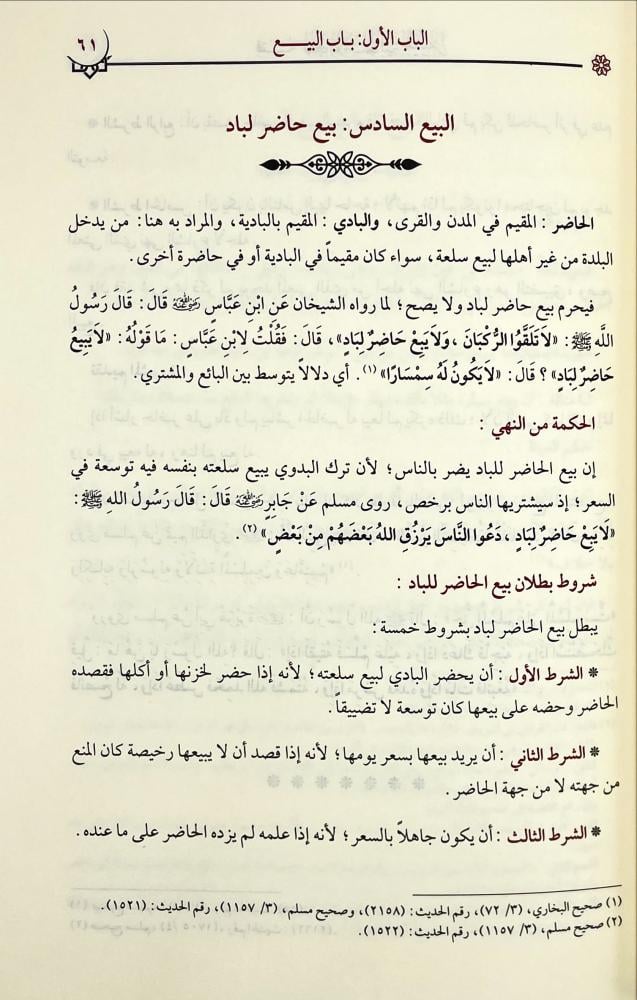 الباب الأول: باب البيـــع
٦١
البيع السادس: بيع حاضر لباد
الحاضر : المقيم في المدن والقرى، والبادي : المقيم بالبادية، والمراد به هنا: من يدخل
البلدة من غير أهلها لبيع سلعة، سواء كان مقيماً في البادية أو في حاضرة أخرى.
فيحرم بيع حاضر لباد ولا يصح؛ لما رواه الشيخان عَنِ ابْنِ عَبَّاسٍ رضي الله عنه قَالَ: قَالَ رَسُولُ
اللَّهِ ﷺ: «لَا تَلَقَّوُا الرُّكْبَانَ، وَلَا يَبِعْ حَاضِرٌ لِبَادٍ»، قَالَ: فَقُلْتُ لِابْنِ عَبَّاسٍ: مَا قَوْلُهُ: «لَا يَبِيعُ
حَاضِرٌ لِبَادٍ» ؟ قَالَ: «لَا يَكُونُ لَهُ سِمْسَارًا» (١). أي دلالاً يتوسط بين البائع والمشتري.
الحكمة من النهي :
إن بيع الحاضر للباد يضر بالناس؛ لأن ترك البدوي يبيع سلعته بنفسه فيه توسعة في
السعر؛ إذ سيشتريها الناس برخص، روى مسلم عَنْ جَابِرٍ رضي الله عنه قَالَ: قَالَ رَسُولُ الله ﷺ:
«لَا يَبِعْ حَاضِرٌ لِبَادٍ، دَعُوا النَّاسَ يَرْزُقِ اللهُ بَعْضَهُمْ مِنْ بَعْضٍ» (٢).
شروط بطلان بيع الحاضر للباد :
يبطل بيع الحاضر لباد بشروط خمسة:
* الشرط الأول : أن يحضر البادي لبيع سلعته؛ لأنه إذا حضر لخزنها أو أكلها فقصده
الحاضر وحضه على بيعها كان توسعة لا تضييقاً.
* الشرط الثاني : أن يريد بيعها بسعر يومها؛ لأنه إذا قصد أن لا يبيعها رخيصة كان المنع
من جهته لا من جهة الحاضر.
* الشرط الثالث : أن يكون جاهلاً بالسعر؛ لأنه إذا علمه لم يزده الحاضر على ما عنده.
(١) صحيح البخاري، (٣/ ٧٢)، رقم الحديث: (٢١٥٨)، وصحيح مسلم، (٣/ ١١٥٧)، رقم الحديث: (١٥٢١).
(٢) صحيح مسلم، (٣/ ١١٥٧)، رقم الحديث: (١٥٢٢).